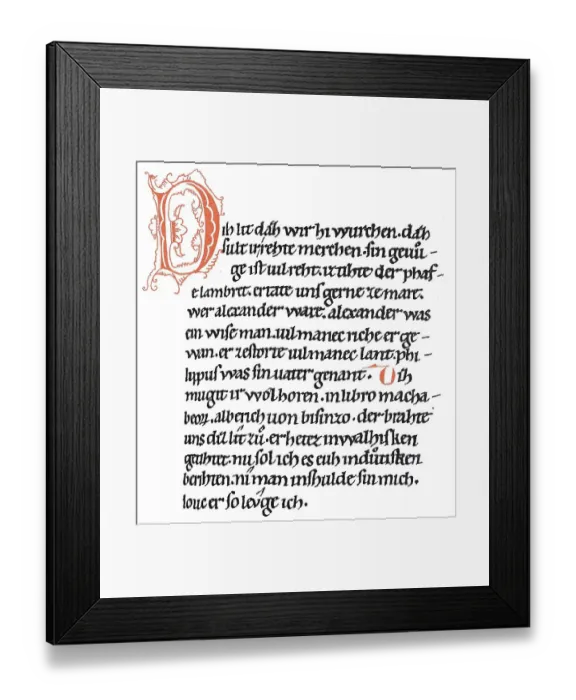 Dih lit dáh wir hi wurchen. dáh
sult ir rehte merchen. sin geuů-
ge ist uil reht. iz tihte der phaf-
fe lambret. er tate uns gerne ze mare.
wer alexander ware. alexander was
ein wise man. uil manec riche er ge-
wan. er zestorte uil manec lant. phi-
lippus was sin uater genant. Dih
mugit ir wol horen. in libro macha-
beoꝝ. alberich uon bisinzo. der brahte
uns diz lit zů. er hetez in walhisken
getihtet. nu sol ich es euh in důtisken
berihten. niman inshulde sin mich.
louc er so leuge ich.